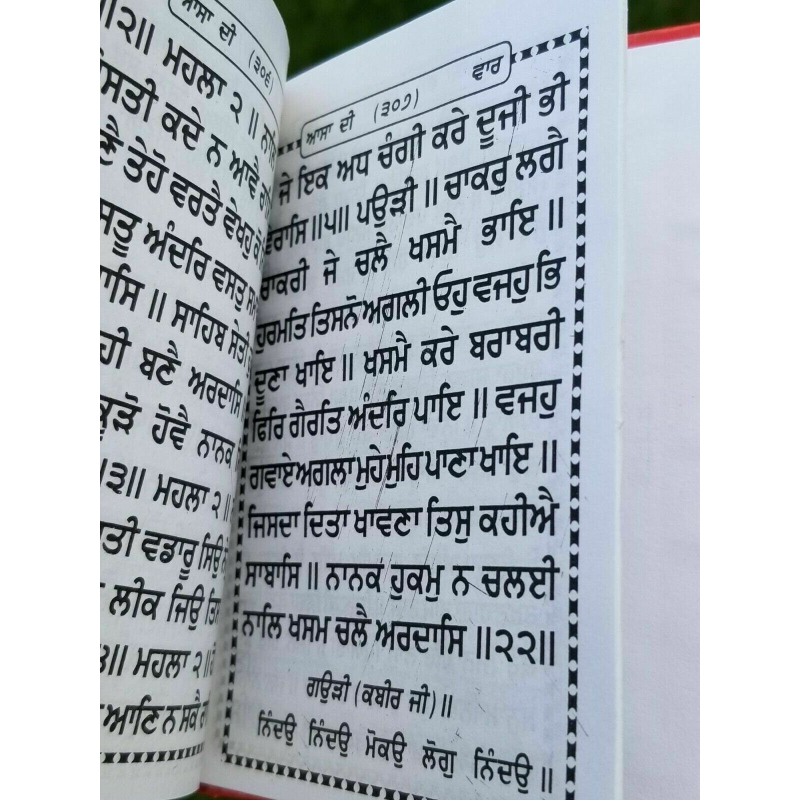 ਆਸਾ ਦੀ (੩੦੬)
॥੨॥ ਮਹਲਾ ੨ ॥
ਕਦੇ ਨ ਆਵੈ
ਤੇਹੋ ਵਰਤੈ ਵੇਖਹੁ ਕੋ
ਅੰਦਰਿ ਵਸਤੁ
॥ ਸਾਹਿਬ ਸੇਤੀ
ਹੀ ਬਣੈ ਅਰਦਾਸਿ
ਕੂੜੋ ਹੋਵੈ ਨਾਨਕ
॥੩॥ ਮਹਲਾ ੨॥
ਵਡਾਰੂ ਸਿਉ
ਲੀਕ ਜਿਉ
॥ ਮਹਲਾ ੨॥
ਆਣਿ ਨ ਸਕੈ
ਆਸਾ ਦੀ (੩੦੭) ਵਾਰ
ਜੇ ਇਕ ਅਧ ਚੰਗੀ ਕਰੇ ਦੂਜੀ ਭੀ
ਵੇਰਾਸਿ ॥੫॥ ਪਉੜੀ ॥ ਚਾਕਰੁ ਲਗੈ
ਚਾਕਰੀ ਜੇ ਚਲੈ ਖਸਮੈ ਭਾਇ ॥
ਹੁਰਮਤਿ ਤਿਸਨੋ ਅਗਲੀ ਓਹੁ ਵਜਹੁ ਭਿ
ਦੂਣਾ ਖਾਇ ॥ ਖਸਮੈ ਕਰੇ ਬਰਾਬਰੀ
ਫਿਰਿ ਗੈਰਤਿ ਅੰਦਰਿ ਪਾਇ ॥ ਵਜਹੁ
ਗਵਾਏ ਅਗਲਾ ਮੁਹੇ ਮੁਹਿ ਪਾਣਾ ਖਾਇ ॥
ਜਿਸਦਾ ਦਿਤਾ ਖਾਵਣਾ ਤਿਸੁ ਕਹੀਐ
ਸਾਬਾਸਿ ॥ ਨਾਨਕ ਹੁਕਮੁ ਨ ਚਲਈ
ਨਾਲਿ ਖਸਮ ਚਲੈ ਅਰਦਾਸਿ ॥੨੨॥
ਗਉੜੀ (ਕਬੀਰ ਜੀ)॥
ਨਿੰਦਉ ਨਿੰਦਉ ਮੋਕਉ ਲੋਗੁ ਨਿੰਦਉ ॥